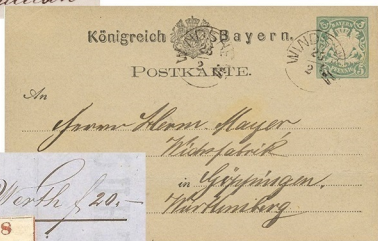 Königreich Bayern.
WINDSH
POSTKARTE.
An
Herrn Herm. Mayer,
Wichsfabrik
in Göppingen,
Württemberg
Werth f 20.-
8